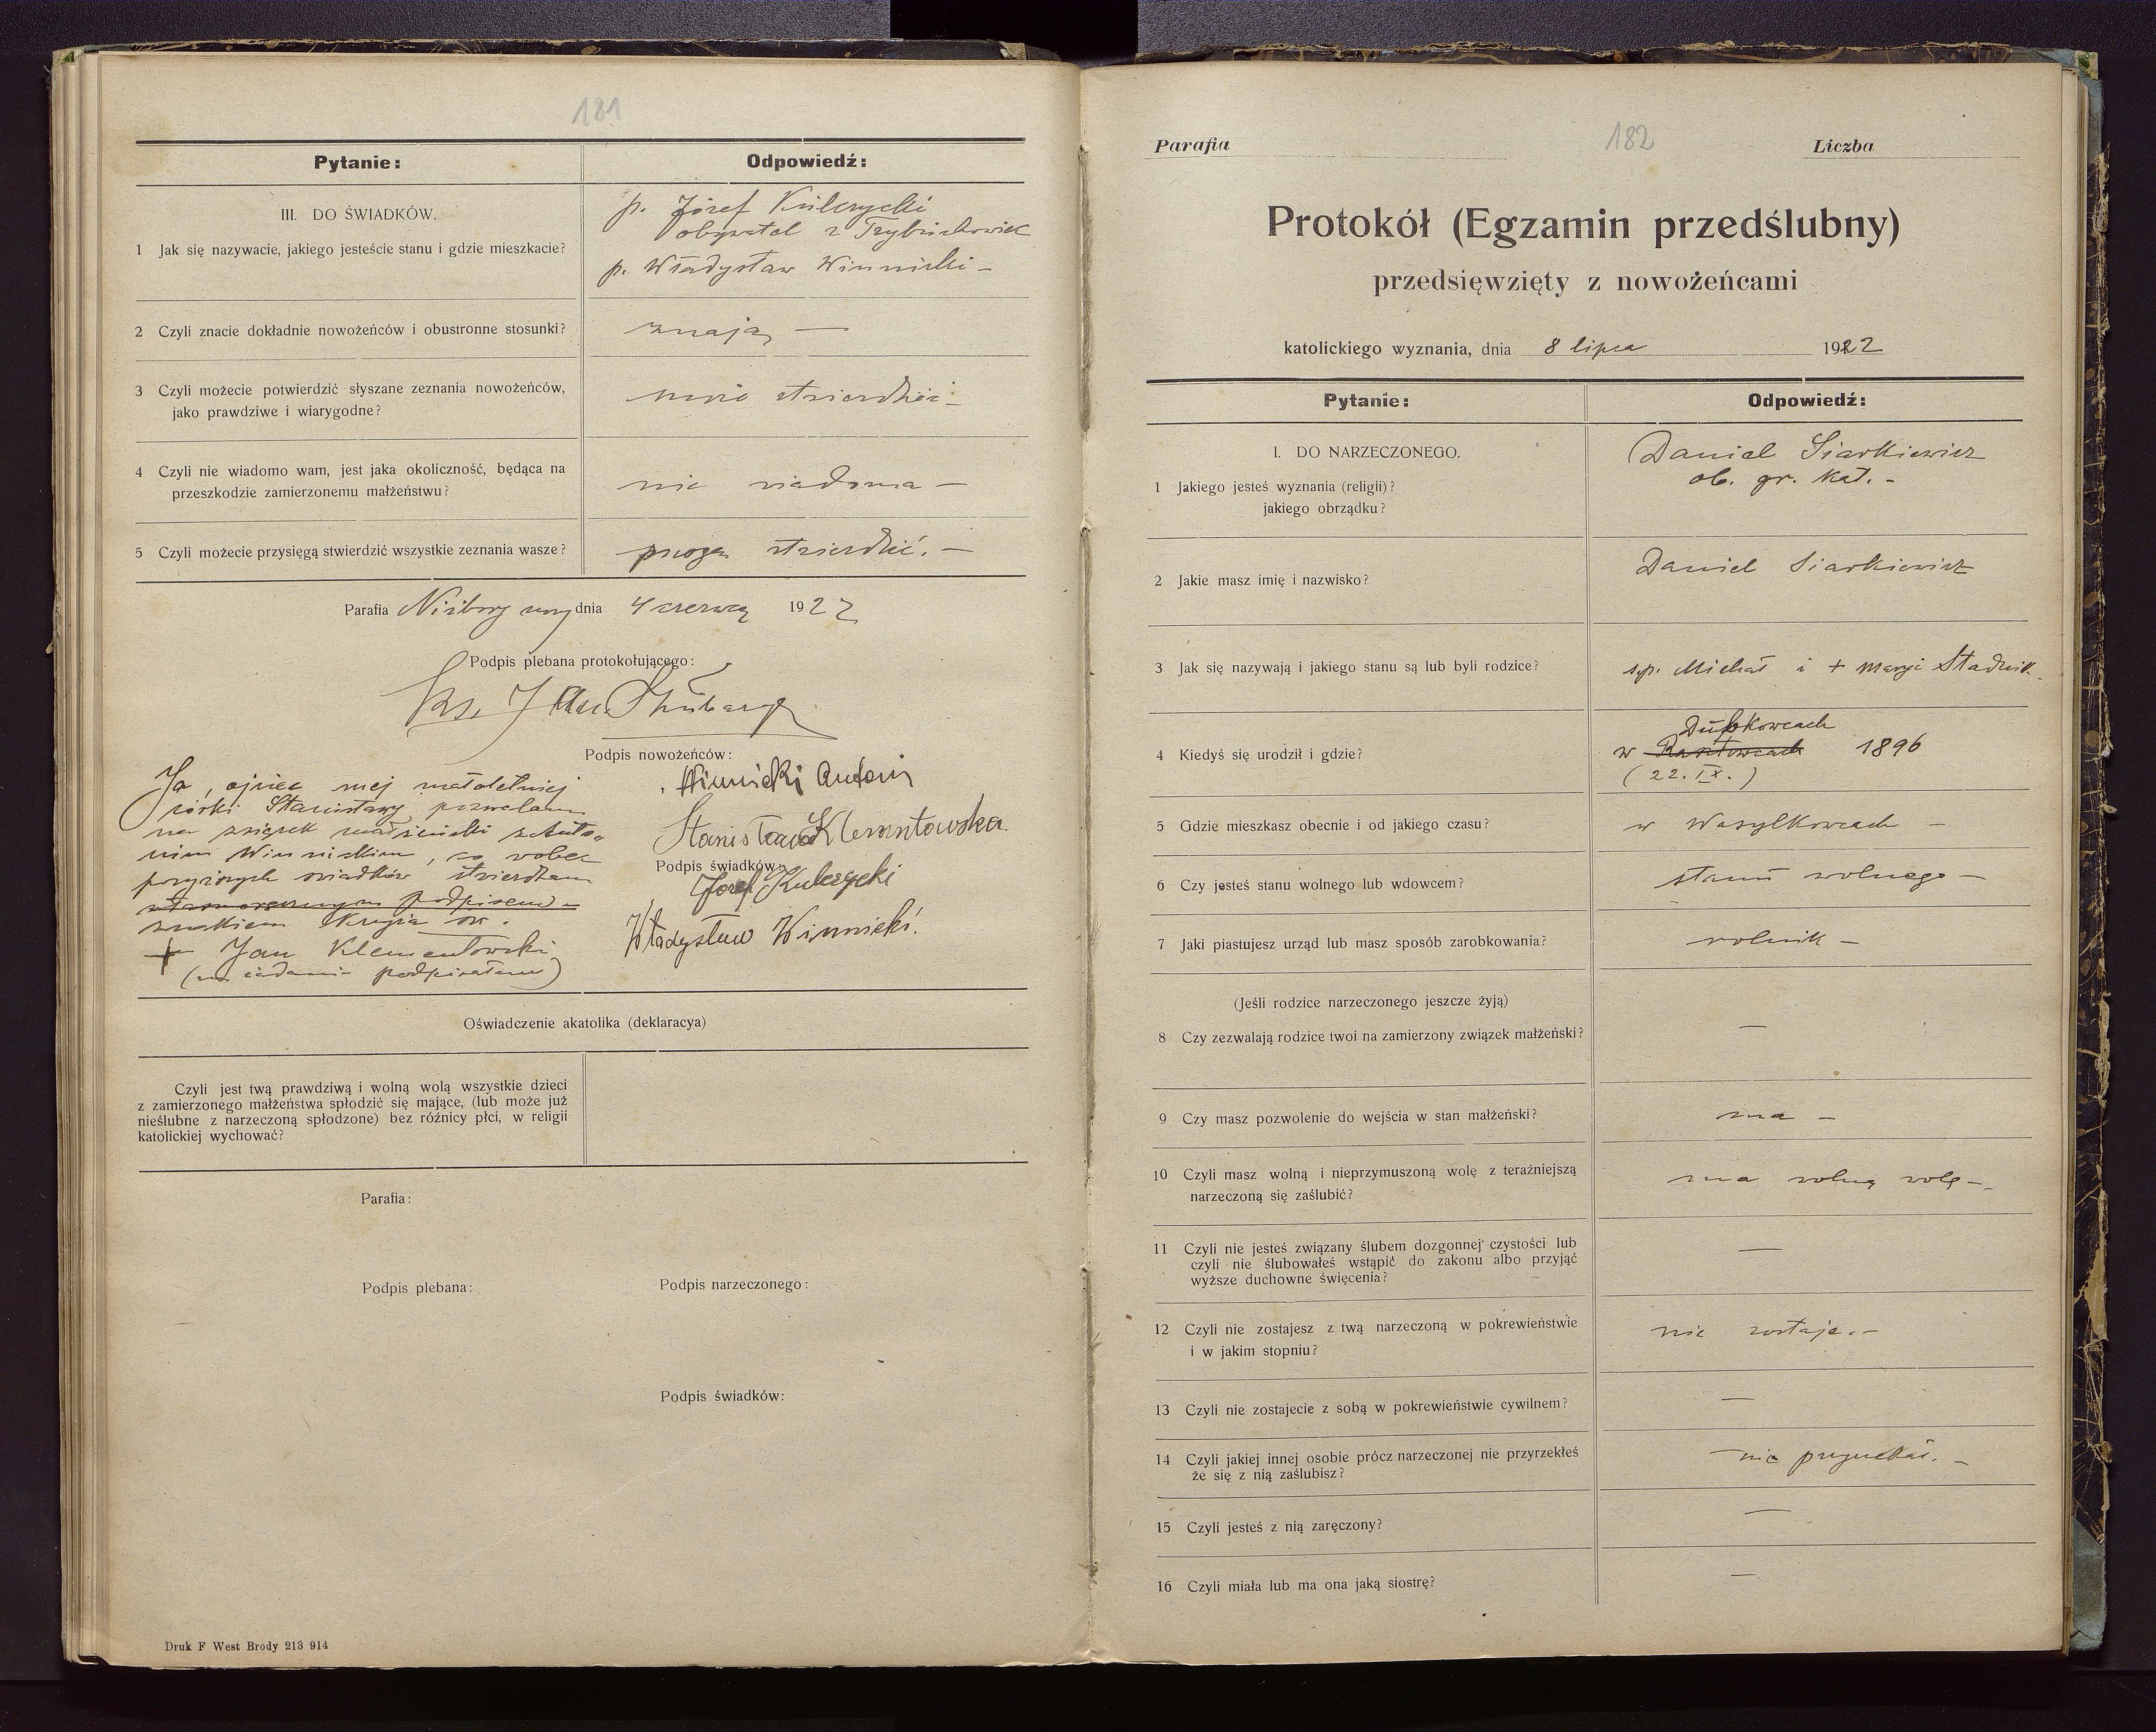 181
Pytanie:
Odpowiedź:
III. DO ŚWIADKÓW.
1 Jak się nazywacie, jakiego jesteście stanu i gdzie mieszkacie?
p. Józef Kulczycki
obywatel z Trybuchowiec
p. Władysław Winnicki –
2 Czyli znacie dokładnie nowożeńców i obustronne stosunki?
znają —
3 Czyli możecie potwierdzić słyszane zeznania nowożeńców,
jako prawdziwe i wiarygodne?
stwierdzić –
4 Czyli nie wiadomo wam, jest jaka okoliczność, będąca na
przeszkodzie zamierzonemu małżeństwu?
nie wiadoma –
5 Czyli możecie przysięgą stwierdzić wszystkie zeznania wasze?
mogą stwierdzić. –
Parafia Niżborg nowy dnia 4 czerwca 1922
Podpis plebana protokołującego:
Ks. Jan
Podpis nowożeńców:
Winnicki Antoni
Stanisława Klementowska
Podpis świadków:
Józef Kulczycki
Władysław Winnicki.
Ja, ojciec mej małoletniej
córki Stanisławy pozwalam
na związek małżeński z Anto-
nim Winnickim, co wobec
powyższych świadków stwierdzam
własnoręcznym podpisem –
znakiem krzyża św.
+ Jan Klementowski
(na żądanie podpisałem)
Oświadczenie akatolika (deklaracya)
Czyli jest twą prawdziwą i wolną wolą wszystkie dzieci
z zamierzonego małżeństwa spłodzić się mające, (lub może już
nieślubne z narzeczoną spłodzone) bez różnicy płci, w religii
katolickiej wychować?
Parafia:
Podpis plebana:
Podpis narzeczonego:
Podpis świadków:
Druk F West Brody 213 914
Parafia
182
Liczba
Protokół (Egzamin przedślubny)
przedsięwzięty z nowożeńcami
katolickiego wyznania, dnia 8 lipca 1922
Pytanie:
Odpowiedź:
I. DO NARZECZONEGO.
1 Jakiego jesteś wyznania (religii)?
jakiego obrządku?
Daniel Siarkiewicz
ob. gr. kat. –
2 Jakie masz imię i nazwisko?
Daniel Siarkiewicz
3 Jak się nazywają i jakiego stanu są lub byli rodzice?
śp. Michał i + Maryi Stadnik
4 Kiedyś się urodził i gdzie?
w 1896
(22. IX.)
5 Gdzie mieszkasz obecnie i od jakiego czasu?
w Wasylkowcach –
6 Czy jesteś stanu wolnego lub wdowcem?
stanu wolnego –
7 Jaki piastujesz urząd lub masz sposób zarobkowania?
rolnik –
(Jeśli rodzice narzeczonego jeszcze żyją)
8 Czy zezwalają rodzice twoi na zamierzony związek małżeński?
—
9 Czy masz pozwolenie do wejścia w stan małżeński?
ma –
10 Czyli masz wolną i nieprzymuszoną wolę z teraźniejszą
narzeczoną się zaślubić?
ma wolną wolę –
11 Czyli nie jesteś związany ślubem dozgonnej czystości lub
czyli nie ślubowałeś wstąpić do zakonu albo przyjąć
wyższe duchowne święcenia?
—
12 Czyli nie zostajesz z twą narzeczoną w pokrewieństwie
i w jakim stopniu?
nie zostaje. –
13 Czyli nie zostajecie z sobą w pokrewieństwie cywilnem?
—
14 Czyli jakiej innej osobie prócz narzeczonej nie przyrzekłeś
że się z nią zaślubisz?
nie przyrzekał. –
15 Czyli jesteś z nią zaręczony?
—
16 Czyli miała lub ma ona jaką siostrę?
—